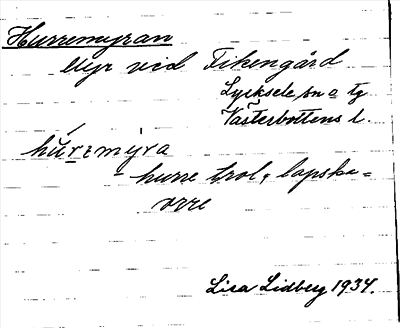 Hurremyran
Myr vid Fikengård
Lycksele sn o tg
Västerbottens l.
hu̇rɛmyra
hurre trol. lapska =
orre
Lisa Lidberg 1934.